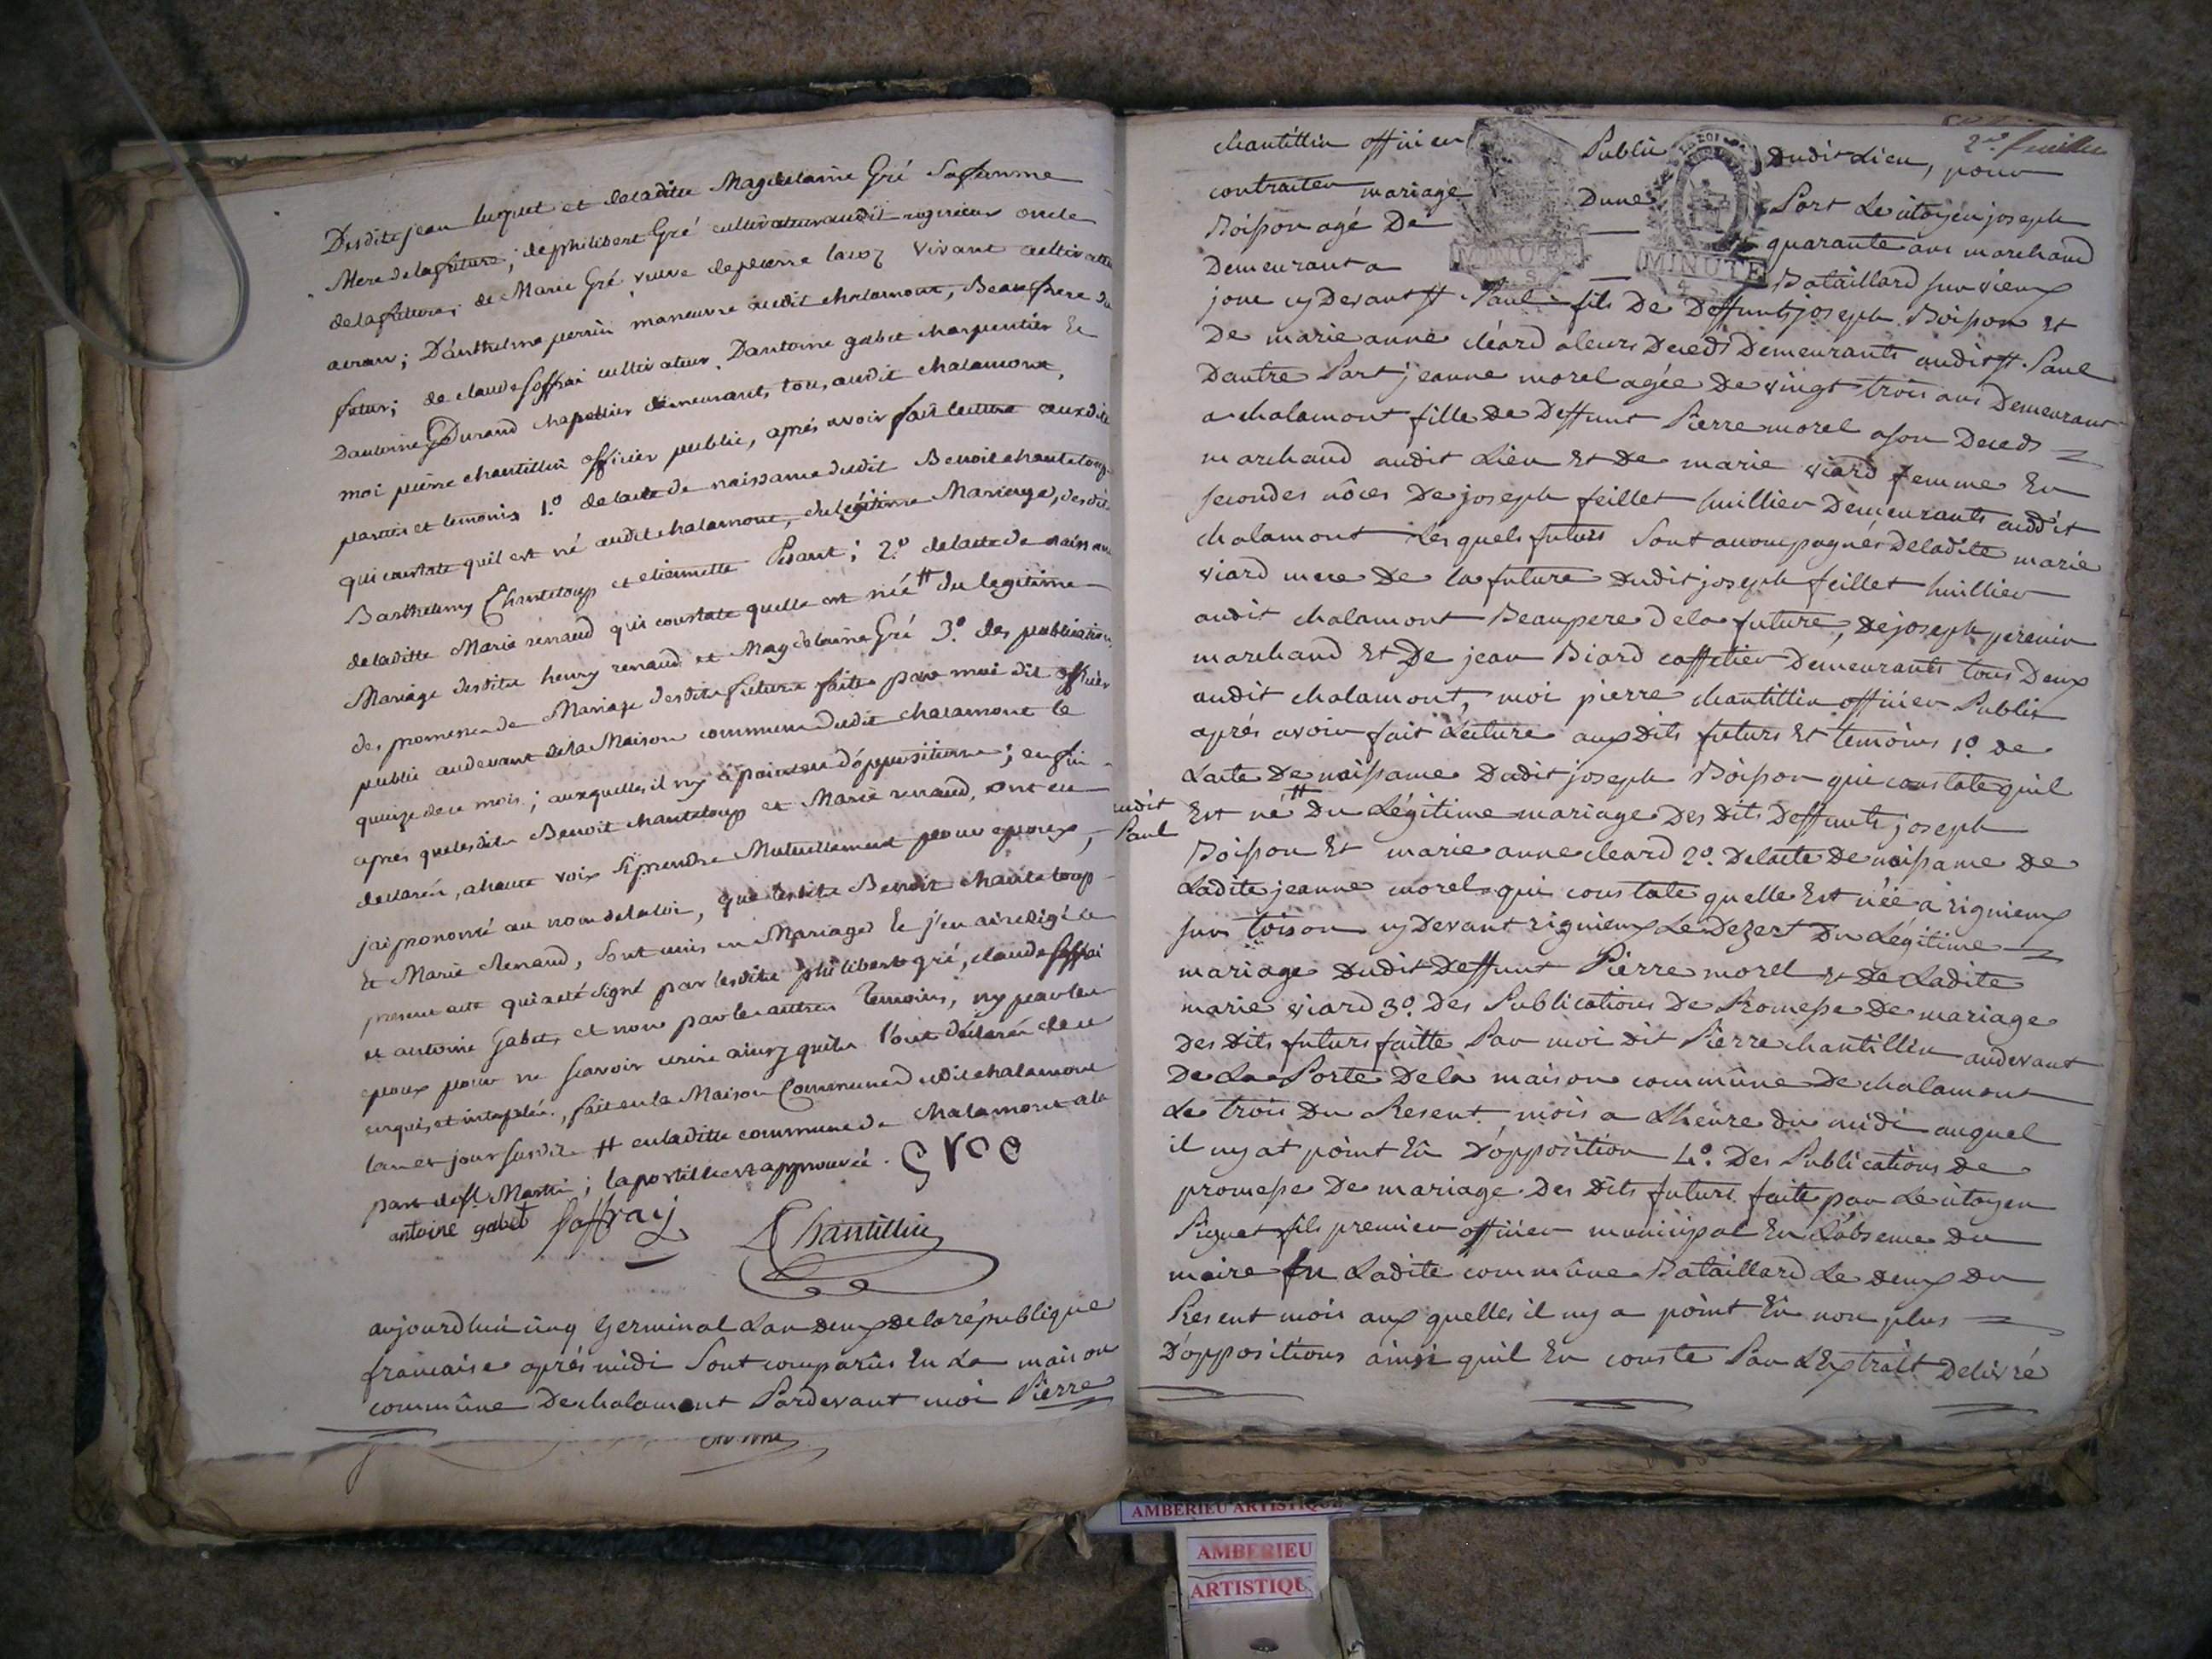 Desdits jean luquet et deladitte Magdelaine Gré Safemme
Mere delafuture; dephilibert Gré cultivateur audit rignieux oncle
delafuture; de Marie Gré veuve depierre lacoz vivant cultivateur
futur; de claude Saffrai cultivateur, Dantoine gabet charpentier Et
Dantoine Durand chapellier demeurant, tous, audit chalamont,
moi pierre chantillin officier public, aprés avoir fait lecture auxdites
parties et temoins 1.° delacte de naissance dudit Benoit chanteloup
qui constate quil est né audit chalamont, du légitime Mariage, desdits
Barthelemy Chanteloup et etiennette Pisant; 2.° delacte de naissance
deladitte Marie renaud qui constate quelle est née # du legitime
Mariage desdits henry renaud et Magdelaine Gré 3.° des publications
des promesses de Mariage desdits futurs faites par moi dit officier
public audevant dela Maison commune dudit chalamont le
quinze dece mois; auxquelles il ny a point eu d'oppositions; enfin
aprés quelesdits Benoit chanteloup et Marie renaud, ont eu
declaré, ahaute voix se prendre Mutuellement pour epoux,
j'ai prononcé au nom delaloi, que lesdits Benoit chanteloup
Et Marie Renaud, sont unis en Mariage Et j'en ai redigé le
present acte qui aeté signé par lesdits philibert gré, claude Saffrai
et antoine Gabet, et non par les autres temoins, ny par les
epoux pour ne scavoir ecrire ainsy quils l'ont déclaré dece
enquis et interpelés, fait en la Maison Commune dudit chalamont
lan et jour susdits # en laditte commune de chalamont a la
part de st Martin; lapostille est approuvée. gree
antoine gabet Saffraij Chantillin
aujourdhui cinq Germinal Lan deux dela république
francaise aprés midi Sont comparus En La maison
commûne De chalamont Pardevant moi Pierre
2.e feuillet
chantillin officier Public Dudit Lieu, pour
contracter mariage Dune Part Le citoyen joseph
Boisson agé De quarante ans marchand
Demeurant a Bataillard sur vieux
MINUTE
MINUTE
jonc cy Devant st. Paul fils De Deffunts joseph Boisson Et
De marie anne cléard aleurs Decéds Demeurants audit st. Paul
Dautre Part jeanne morel agée De vingt trois ans Demeurant
a chalamont fille De Deffunt Pierre morel ason Deceds
marchand audit Lieu Et De marie viard femme En
secondes nôces De joseph feillet huillier Demeurants auddit
chalamont Les quels futurs Sont accompagnés Deladite marie
viard mere De la future Dudit joseph feillet huillier
audit chalamont Beaupere De la future, De joseph perenin
marchand Et De jean Biard caffetier Demeurants tous Deux
audit chalamont, moi pierre chantillin officier Public
aprés avoir fait Lecture auxDits futurs Et temoins 1.° de
Lacte De naissance Dudit joseph Boisson qui constate quil
Est né # Du Légitime mariage Des Dits Deffunts joseph
audit
Paul
Boisson Et marie anne cleard 2.° De lacte De naissance De
Ladite jeanne morel qui constate quelle Est née a rignieux
sur toison cy Devant rignieux Le Dezert Du Légitime
mariage Dudit Deffunt Pierre morel Et De Ladite
marie viard 3.° Des Publications De Promesse De mariage
Des Dits futurs faitte Par moi Dit Pierre chantillin audevant
De La Porte De la maison commûne De chalamont
Le trois Du Present mois a Lheure du midi auquel
il ny at point Eû D'opposition 4.° Des Publications De
promesse De mariage Des Dits futurs faite par Le citoyen
Piquet fils premier officier municipal En L'absence Du
maire En Ladite commûne Bataillard Le Deux Du
Present mois aux quelles il ny a point Eû non plus
D'oppositions ainsi quil En conste Par LExtrait Delivré
AMBERIEU ARTISTIQUE
AMBERIEU
ARTISTIQU